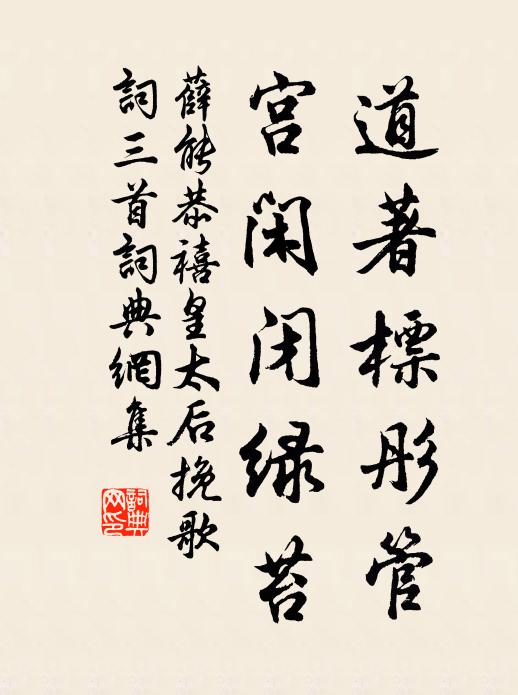 道著標彤管
宫闲闭绿苔
薛能恭禧皇太后挽歌
詞三首詞典網集
詞典
网印